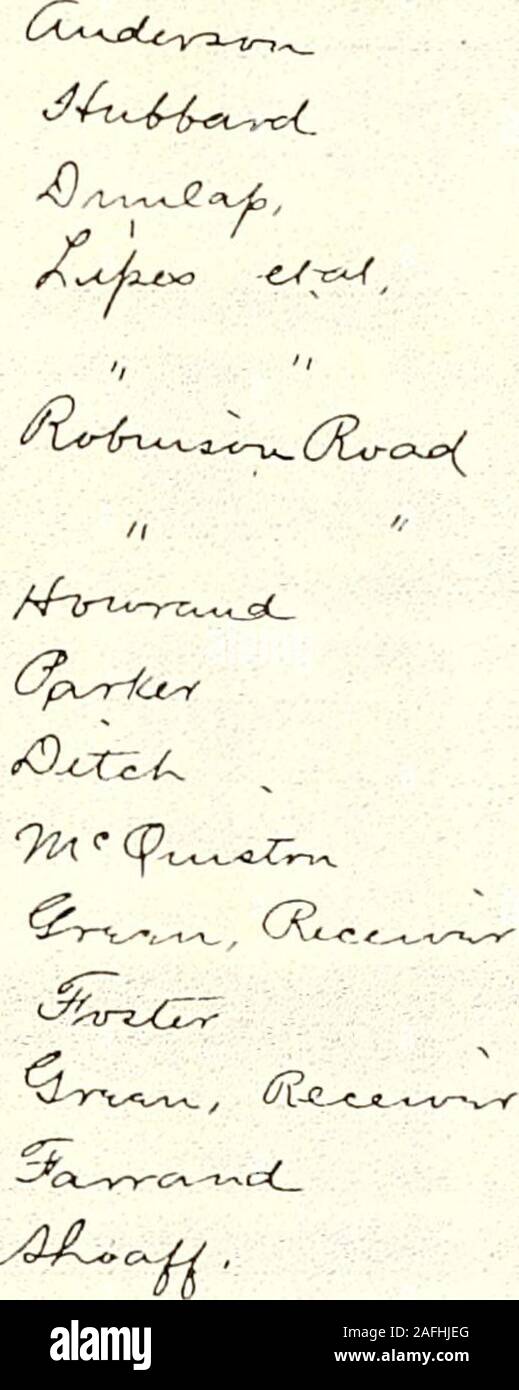 Anderson
Hubbard
Dunlap,
Lipes et al,
" "
Robinson Road
" "
Howrand
Parker
Ditch
McQuiston
Green, Receiver
Foster
Green, Receiver
Farrand
Shoaff.
alamy
alamy
Image ID: 2AFHJEG
www.alamy.com